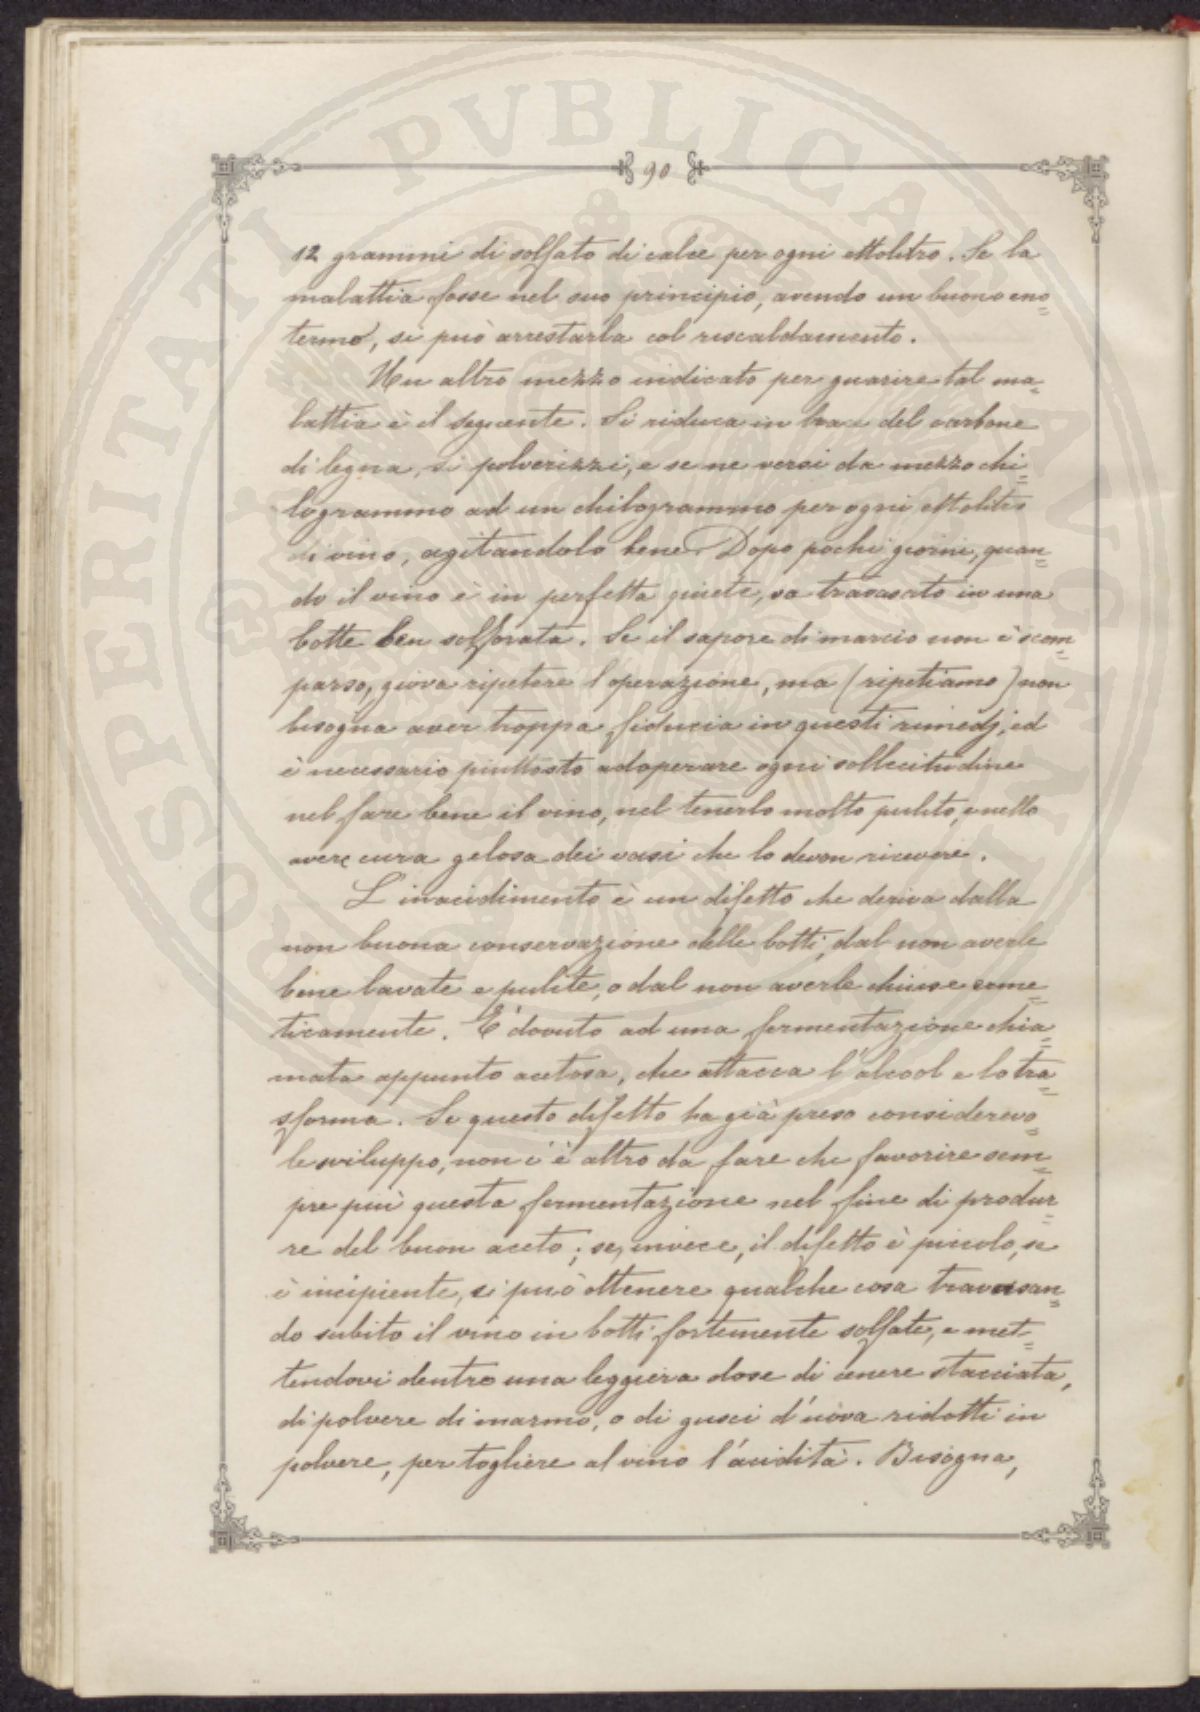 90
12 grammi di solfato di calce per ogni ettolitro. Se la
malattia fosse nel suo principio, avendo un buono eno=
termo, si può arrestarla col riscaldamento.
Un altro mezzo indicato per guarire tal ma=
lattia è il seguente. Si riduca in brace del carbone
di legna, si polverizzi, e se ne versi da mezzo chi=
logrammo ad un chilogrammo per ogni ettolitro
di vino, agitandolo bene. Dopo pochi giorni, quan=
do il vino è in perfetta quiete, va travasato in una
botte ben solforata. Se il sapore di marcio non è scom=
parso, giova ripetere l'operazione, ma (ripetiamo) non
bisogna aver troppa fiducia in questi rimedj, ed
è necessario piuttosto adoperare ogni sollecitudine
nel fare bene il vino, nel tenerlo molto pulito, e nello
avere cura gelosa dei vasi che lo devon ricevere.
L'inacidimento è un difetto che deriva dalla
non buona conservazione delle botti, dal non averle
bene lavate e pulite, o dal non averle chiuse erme=
ticamente. E' dovuto ad una fermentazione chia=
mata appunto acetosa, che attacca l'alcool e lo tra=
sforma. Se questo difetto ha già preso considerevo=
le sviluppo, non c'è altro da fare che favorire sem=
pre più questa fermentazione nel fine di produr=
re del buon aceto; se, invece, il difetto è piccolo, se
è incipiente, si può ottenere qualche cosa travasan=
do subito il vino in botti fortemente solfate, e met=
tendovi dentro una leggiera dose di cenere stacciata,
di polvere di marmo, o di gusci d'uova ridotti in
polvere, per togliere al vino l'acidità. Bisogna,
PROSPERITATI PVBLICAE AVGENDAE